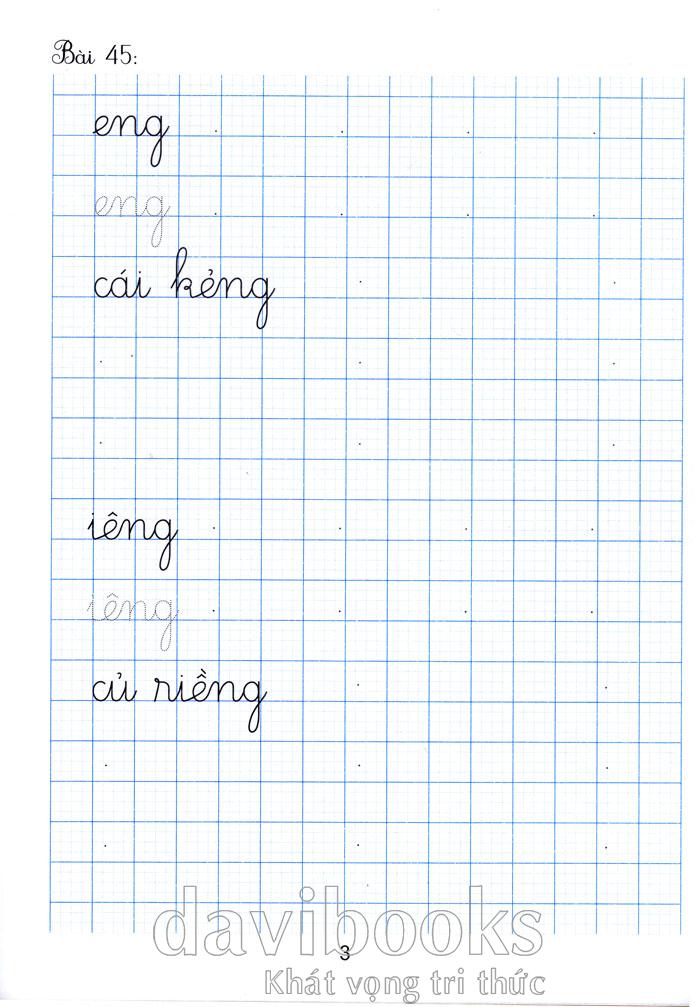 Bài 45:
eng
eng
cái kẻng
iêng
iêng
củ riềng
davibooks
3
Khát vọng tri thức